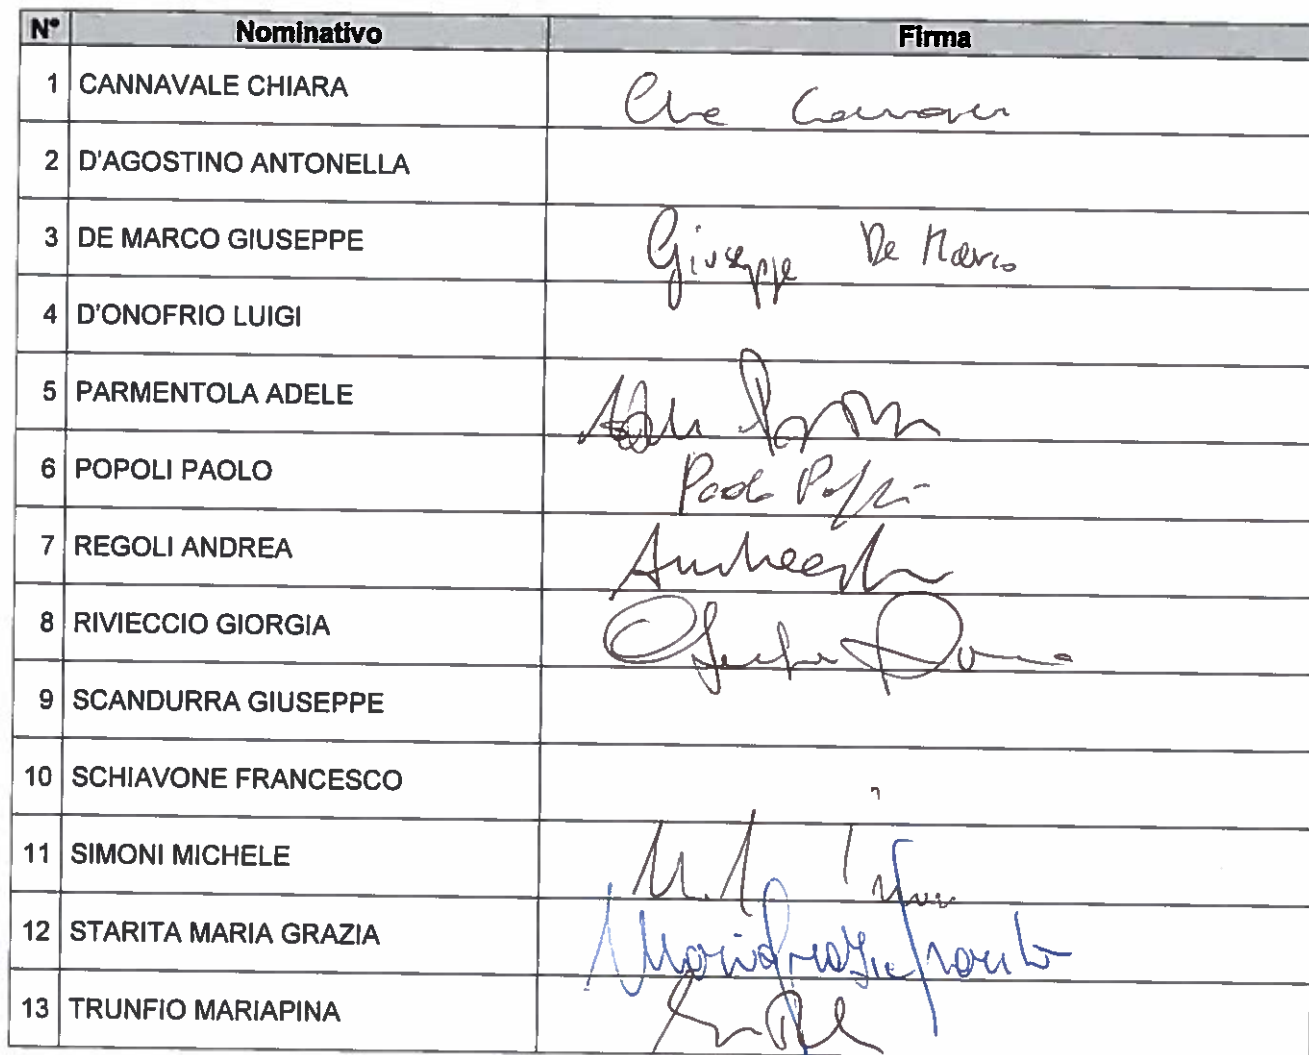 N° Nominativo Firma
1 CANNAVALE CHIARA
2 D'AGOSTINO ANTONELLA
3 DE MARCO GIUSEPPE Giuseppe De Marco
4 D'ONOFRIO LUIGI
5 PARMENTOLA ADELE
6 POPOLI PAOLO Paolo Popoli
7 REGOLI ANDREA
8 RIVIECCIO GIORGIA
9 SCANDURRA GIUSEPPE
10 SCHIAVONE FRANCESCO
11 SIMONI MICHELE
12 STARITA MARIA GRAZIA
13 TRUNFIO MARIAPINA